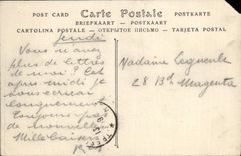 POST CARD Carte Postale POSTKARTE
BRIEFKAART POSTKORT
CARTOLINA POSTALE ОТКРЫТОЕ ПИСЬМО TARJETA POSTAL
Jeudi
Vous n'avez
plus de lettres
de moi ? Cet
après midi je
vous écrirai
longuement
toujours pas
de nouvelles
Mille baisers
Madame
28 Bd Magenta